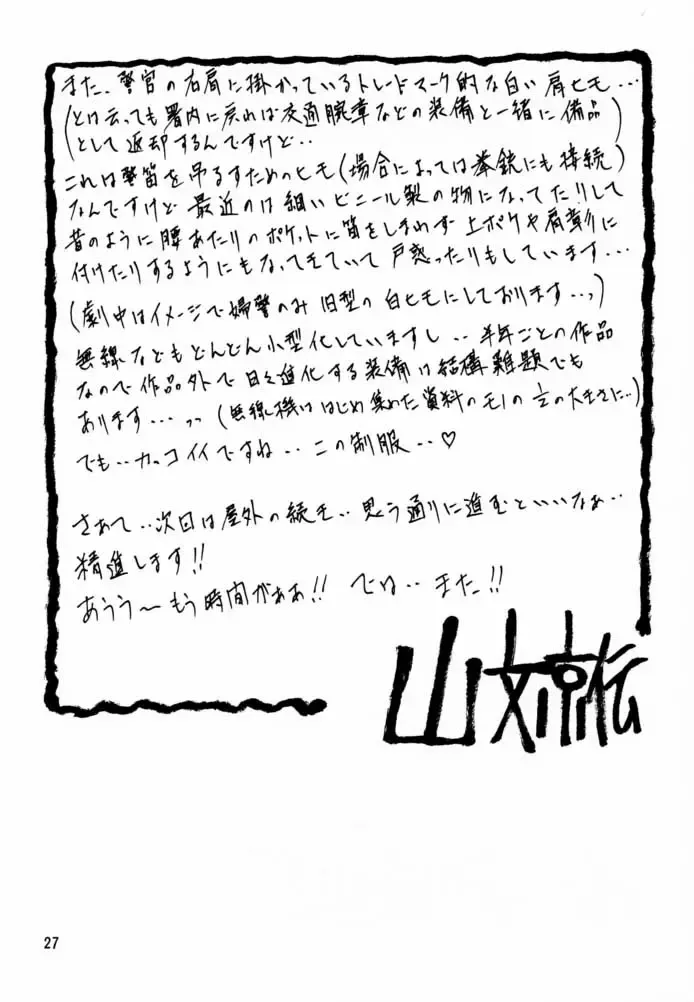 また、警官の右肩に掛かっているトレードマーク的な白い肩ヒモ…
(とは云っても署内に戻れば交通腕章などの装備と一緒に備品
として返却するんですけど‥)
これは警笛を吊るすためのヒモ(場合によっては拳銃にも接続)
なんですけど最近のは細いビニール製の物になってたりして
昔のように腰あたりのポケットに笛をしまわず上ポケや肩章に
付けたりするようにもなってきていて戸惑ったりもしています…
(劇中はイメージで婦警のみ旧型の白ヒモにしております…っ)
無線などもどんどん小型化していますし‥半年ごとの作品
なので作品外で日々進化する装備は結構難題でも
あります…っっ(無線機ははじめ集めた資料のモノの½の大きさに‥)
でも‥カッコイイですね‥この制服‥♡
さあて‥次回は屋外の続き‥思う通りに進むといいなぁ‥
精進します!!
あううーもう時間がああ!!では‥また!!
山文京伝
27